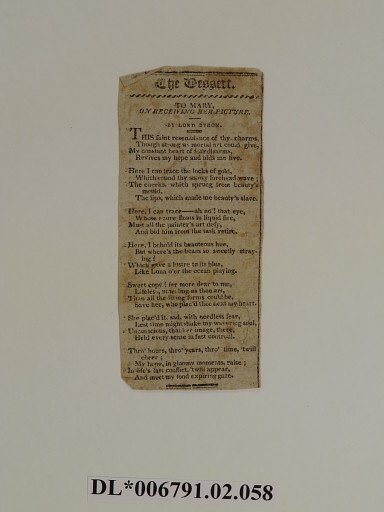 The Dessert.
TO MARY,
ON RECEIVING HER PICTURE.
BY LORD BYRON.
THIS faint resemblance of thy charms,
Though strong as mortal art could give,
My constant heart of fear disarms,
Revives my hope and bids me live.
Here I can trace the locks of gold,
Which round thy snowy forehead wave;
The cheeks, which sprung from beauty's
mould,
The lips, which made me beauty's slave.
Here, I can trace—ah no! that eye,
Whose azure floats in liquid fire,
Must all the painter's art defy,
And bid him from the task retire.
Here, I behold its beauteous hue,
But where's the beam so sweetly stray-
ing!
Which gave a lustre to its blue,
Like Luna o'er the ocean playing.
Sweet copy! far more dear to me,
Lifeless, unfeeling as thou art,
Than all the living forms could be,
Save her, who plac'd thee next my heart.
She plac'd it, sad, with needless fear,
Lest time might shake my wavering soul,
Unconscious, that her image, there,
Held every sense in fast control.
Thro' hours, thro' years, thro' time, 'twill
cheer;
My hope, in gloomy moments, raise;
In life's last conflict, 'twill appear,
And meet my fond expiring gaze.
DL*006791.02.058